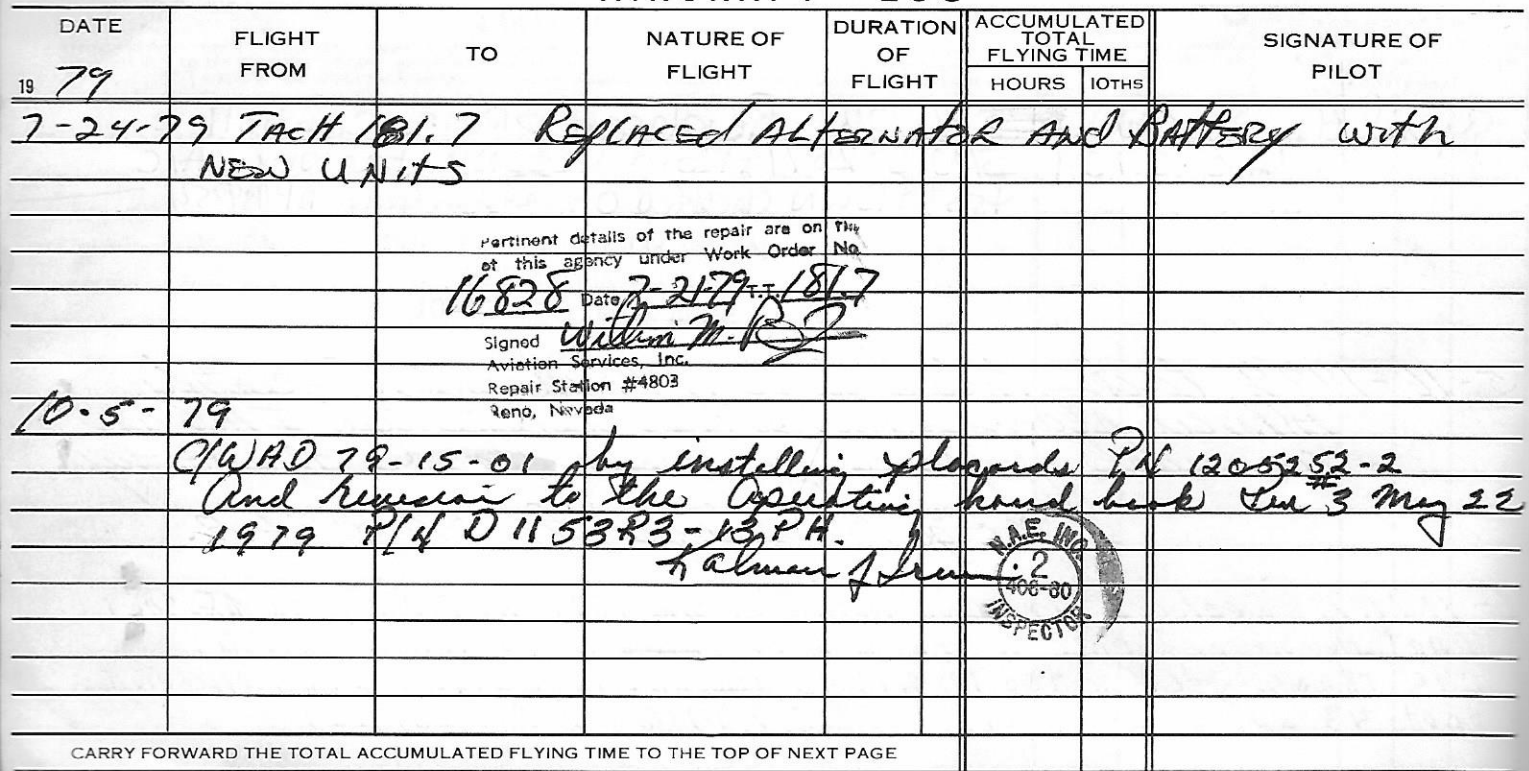 AIRCRAFT LOG
DATE
19 79
FLIGHT
FROM
TO
NATURE OF
FLIGHT
DURATION
OF
FLIGHT
ACCUMULATED
TOTAL
FLYING TIME
HOURS 10THS
SIGNATURE OF
PILOT
7-24-79 TACH 181.7 REPLACED ALTERNATOR AND BATTERY with
NEW UNITS
Pertinent details of the repair are on
at this agency under Work Order No.
16828 Date 7-21-79 T.T. 181.7
Signed William M.
Aviation Services, Inc.
Repair Station #4803
Reno, Nevada
10-5-79
C/W AD 79-15-01 by installing placards PN 1205252-2
And revision to the Operating hand book #3 May 22
1979 P/N D1153R3-13PH.
N.A.E. INC.
2
408-80
INSPECTOR
CARRY FORWARD THE TOTAL ACCUMULATED FLYING TIME TO THE TOP OF NEXT PAGE